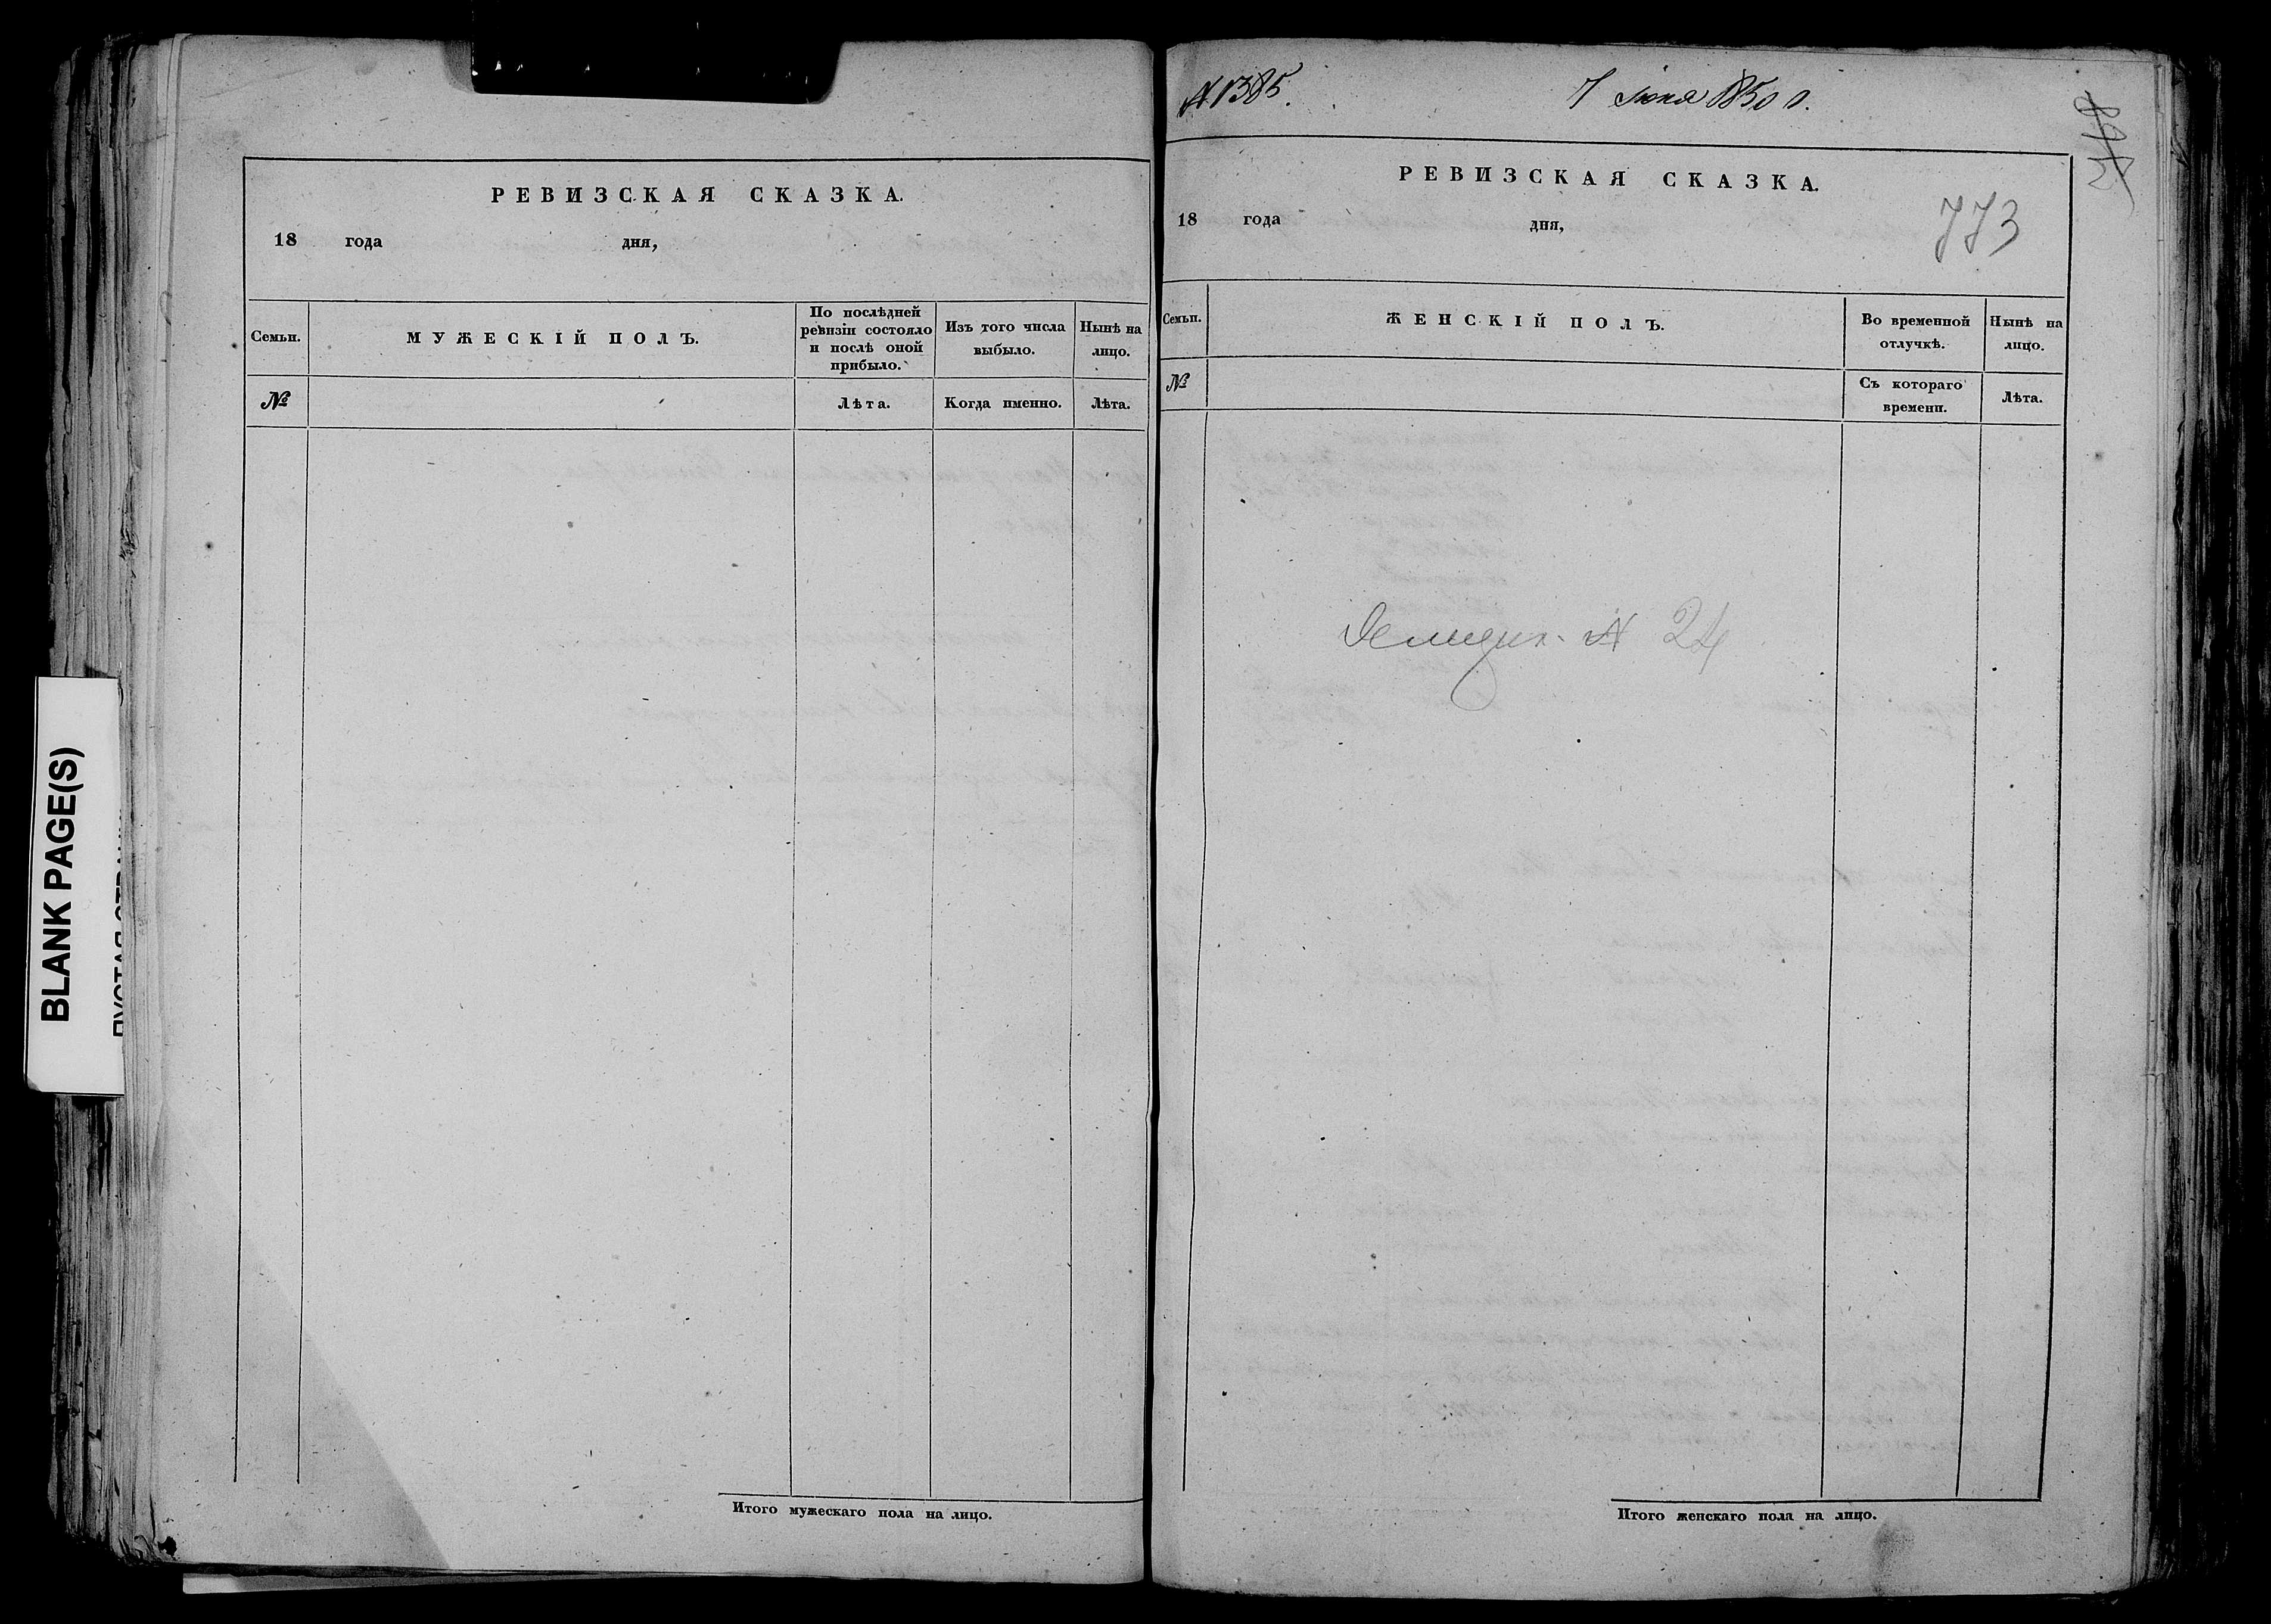 BLANK PAGE(S)
РЕВИЗСКАЯ СКАЗКА.
18 года дня,
Семьи.
МУЖЕСКІЙ ПОЛЪ.
По послѣдней
ревизіи состояло
и послѣ оной
прибыло.
Изъ того числа
выбыло.
Нынѣ на
лицо.
№
Лѣта.
Когда именно.
Лѣта.
Итого мужескаго пола на лицо.
№ 1385.
7 Июня 1850 г.
РЕВИЗСКАЯ СКАЗКА.
18 года дня,
773
Семьи.
ЖЕНСКІЙ ПОЛЪ.
Во временной
отлучкѣ.
Нынѣ на
лицо.
№
Съ котораго
времени.
Лѣта.
№ 24
Итого женскаго пола на лицо.